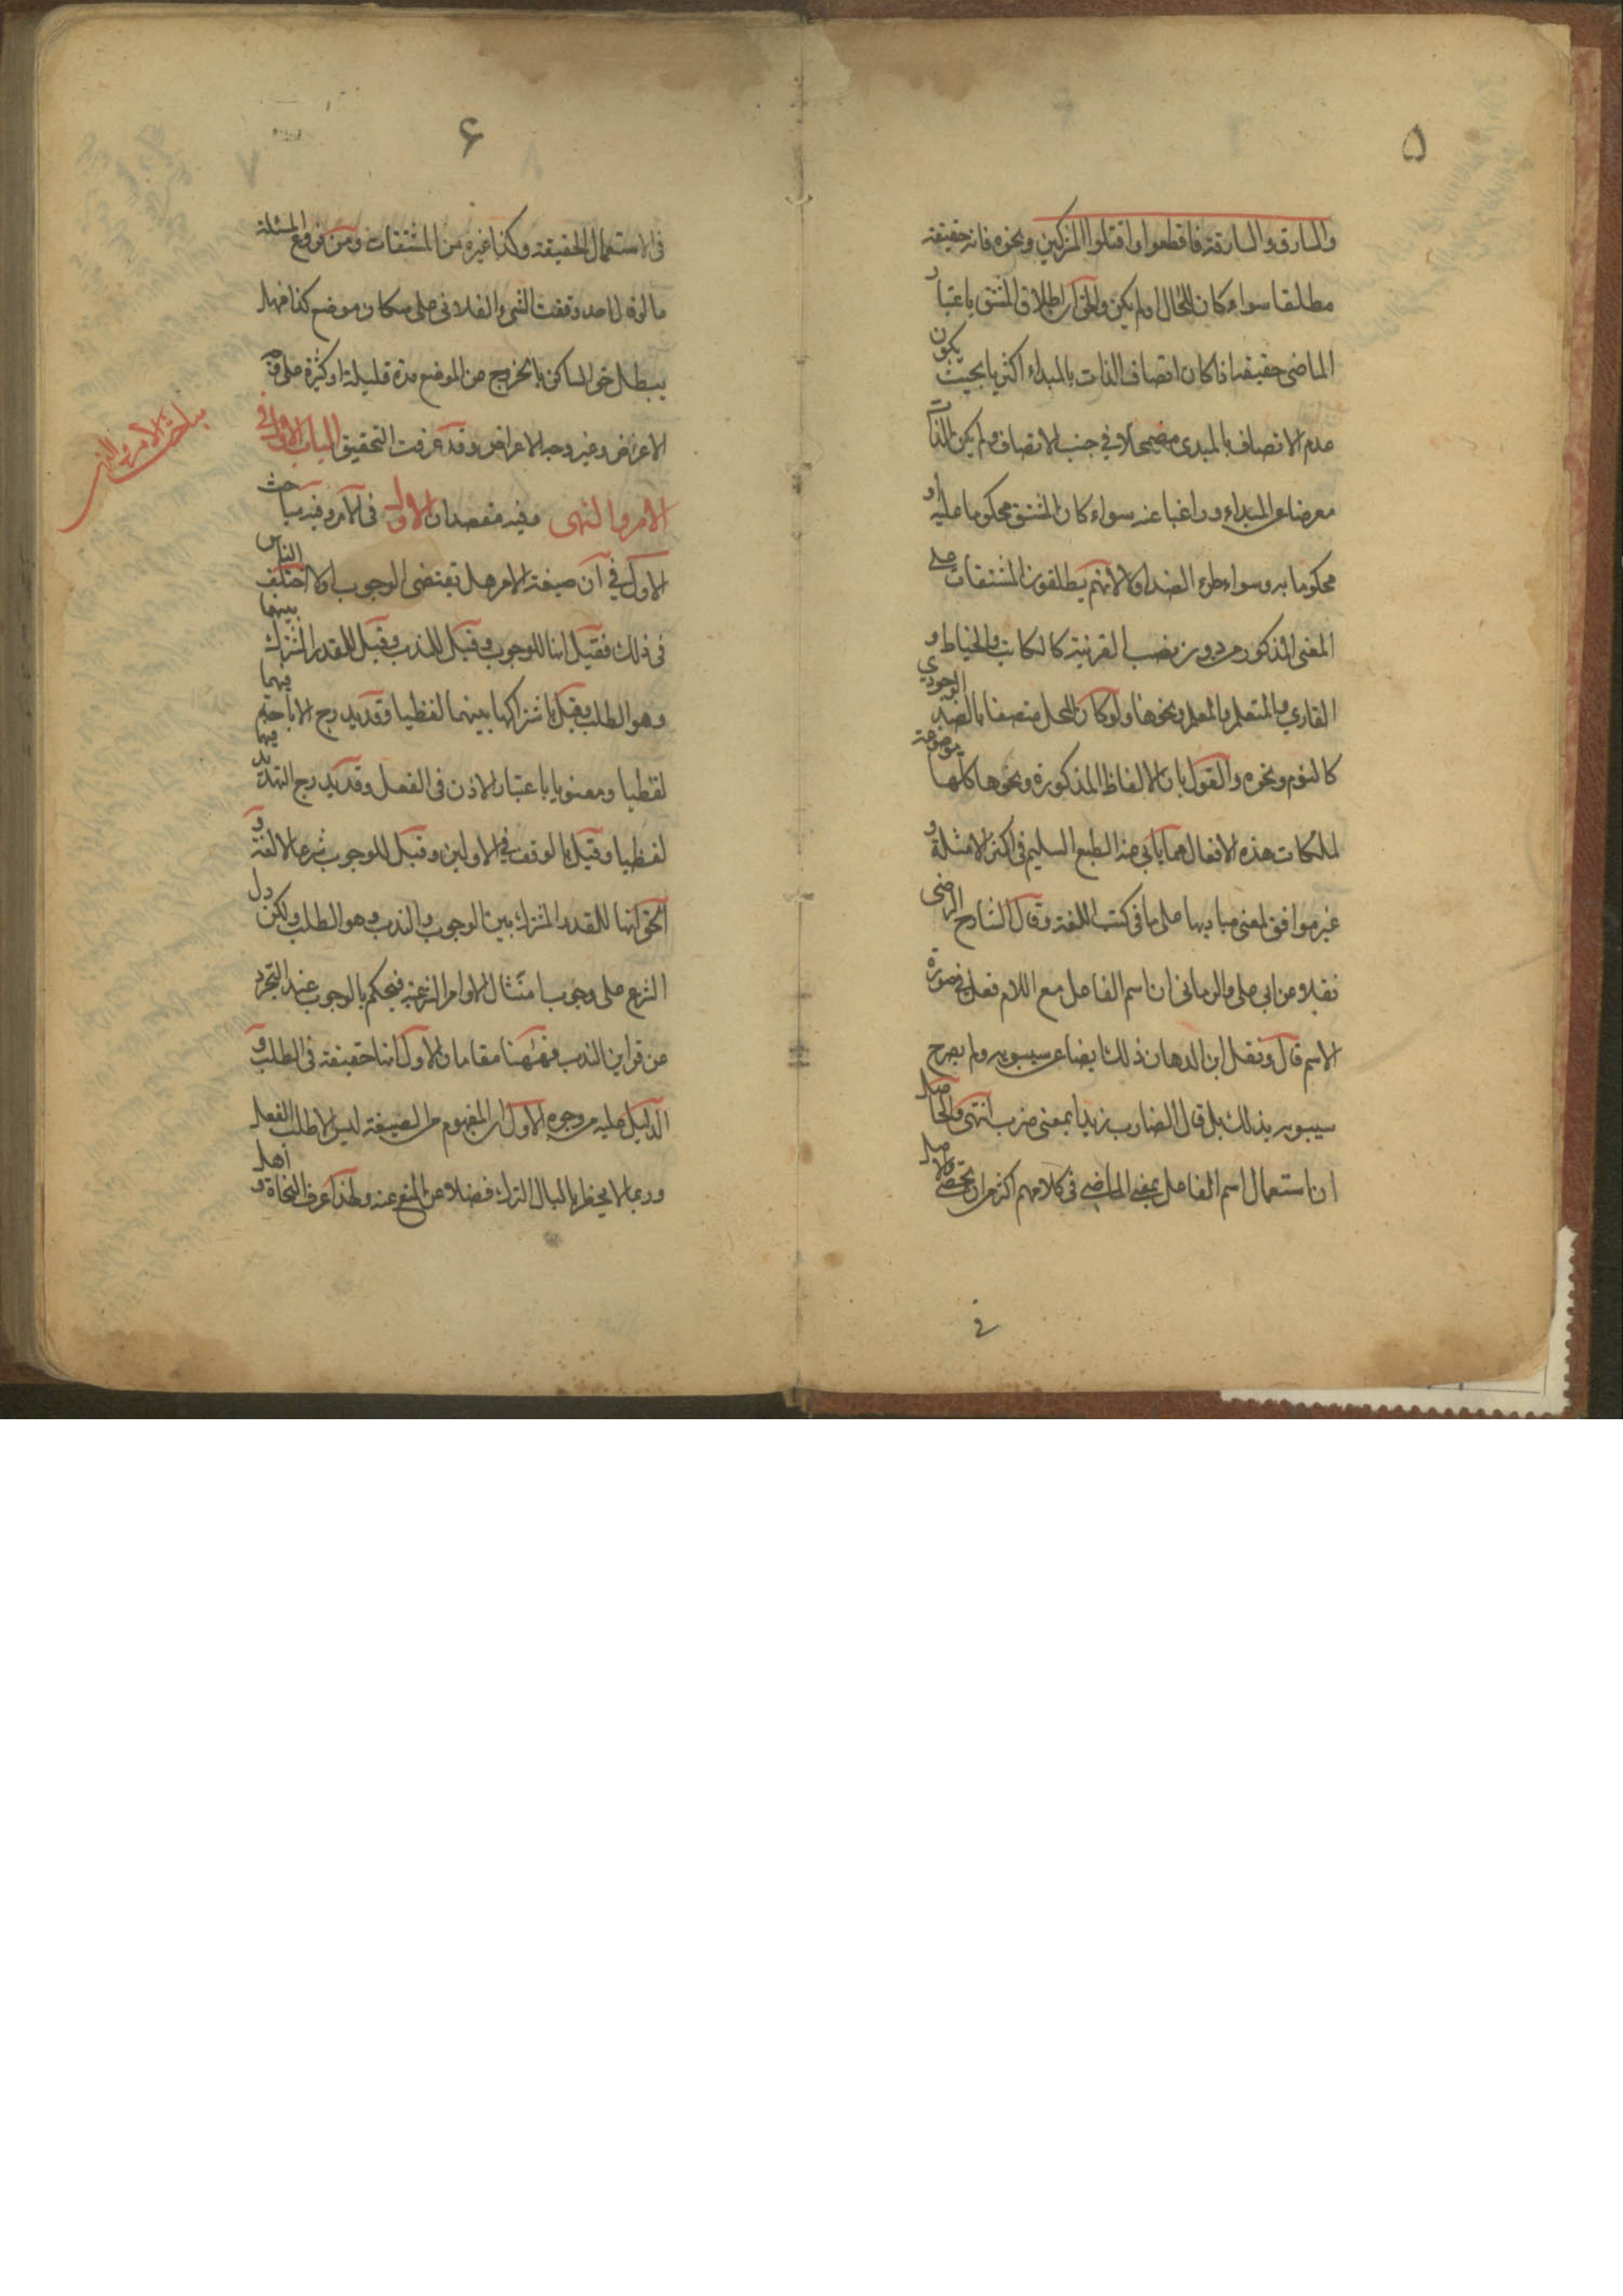 ۵
والسارق والسارقة فاقطعوا واقتلوا المشركين ونحوه فانه حقيقة
مطلقا سواء كان للحال او لم يكن والحق ان اطلاق المشتق باعتبار
الماضى حقيقة اذا كان اتصاف الذات بالمبداء اكثريا بحيث يكون
عدم الاتصاف بالمبدى مضمحلا فى جنب الاتصاف ولم يكن الذات
معرضا عن المبداء وراغبا عنه سواء كان المشتق محكوما عليه او
محكوما به وسواء طرء الضد او لا لانهم يطلقون المشتقات على
المعنى المذكور من دون نصب القرينة كالكاتب والخياط و
القارى والمتعلم والمعلم ونحوها ولو كان المحل متصفا بالضد الوجودي
كالنوم ونحوه والقول بان الالفاظ المذكورة ونحوها كلها موضوعة
لملكات هذه الافعال مما يابى عنه الطبع السليم فى اكثر الامثلة و
غير موافق لمعنى مباديها على ما فى كتب اللغة وقال الشارح الرضى
نقلا عن ابى على والرمانى ان اسم الفاعل مع اللام فعل فى صورة
الاسم قال ونقل ابن الدهان ذلك ايضا عن سيبويه ولم يصرح
سيبويه بذلك بل قال الضارب زيدا بمعنى ضرب انتهى والحاصل
ان استعمال اسم الفاعل بمعنى الماضى فى كلامهم اكثر من ان يحصى والاصل
فى
۶
فى الاستعمال الحقيقة وكذا غيره من المشتقات ومن فروع المسئلة
ما لو قال احد وقفت الشىء الفلانى على سكان موضع كذا فهل
يبطل حق الساكن بالخروج عن الموضع مدة قليلة او كثيرة على وجه
الاعراض وغير وجه الاعراض وقد عرفت التحقيق الباب الاول فى
الامر والنهى وفيه مقصدان الاول فى الامر وفيه مباحث
الاول فى ان صيغة الامر هل تقتضى الوجوب او لا اختلف الناس
فى ذلك فقيل انها للوجوب وقيل للندب وقيل للقدر المشترك بينهما
وهو الطلب وقيل باشتراكها بينهما لفظيا وقد يدرج الاباحة فيها
لفظيا ومعنويا باعتبار الاذن فى الفعل وقد يدرج التهديد فيها
لفظيا وقيل بالوقف فى الاولين وقيل للوجوب شرعا لا لغة و
الحق انها للقدر المشترك بين الوجوب والندب وهو الطلب ولكن دل
الشرع على وجوب امتثال الاوامر الشرعية فيحكم بالوجوب عند التجرد
عن قراين الندب فههنا مقامان الاول انها حقيقة فى الطلب و
الدليل عليه من وجوه الاول ان المفهوم من الصيغة ليس الا طلب الفعل
وربما لا يخطر بالبال الترك فضلا عن المنع عنه ولهذا عرف النحاة و اهل
مباحث الامر والنهى